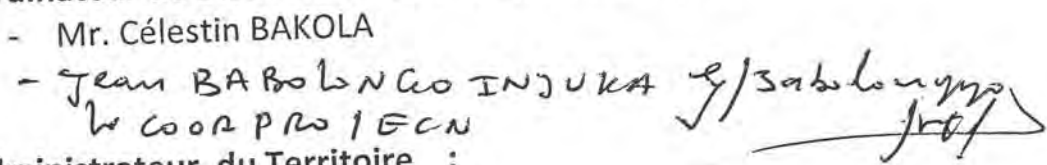 - Mr. Célestin BAKOLA
- Jean BABOLONGO INJUKA
COORPRO / ECN
Administrateur du Territoire :